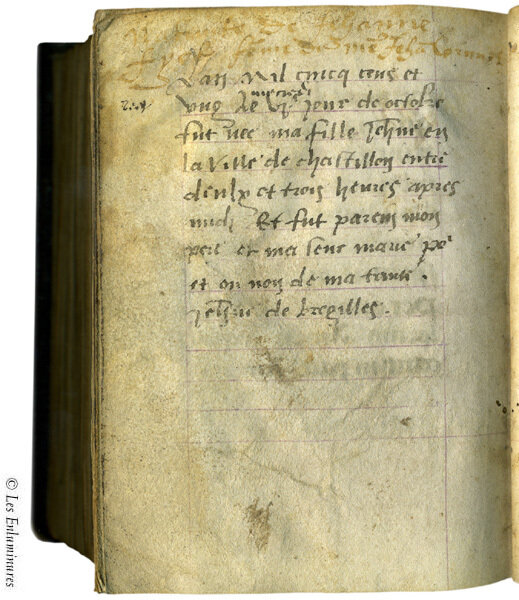 De Jehanne
Lan Mil cincq cens et
ung le vje jour de octobre
mercredi
fut nee ma fille Jehne en
la ville de chastillon entre
deulx et trois heures apres
midi Et fut parein mon
pere et ma seur marie po
et on non de ma tante
Jehne de bregilles.
© Les Enluminures